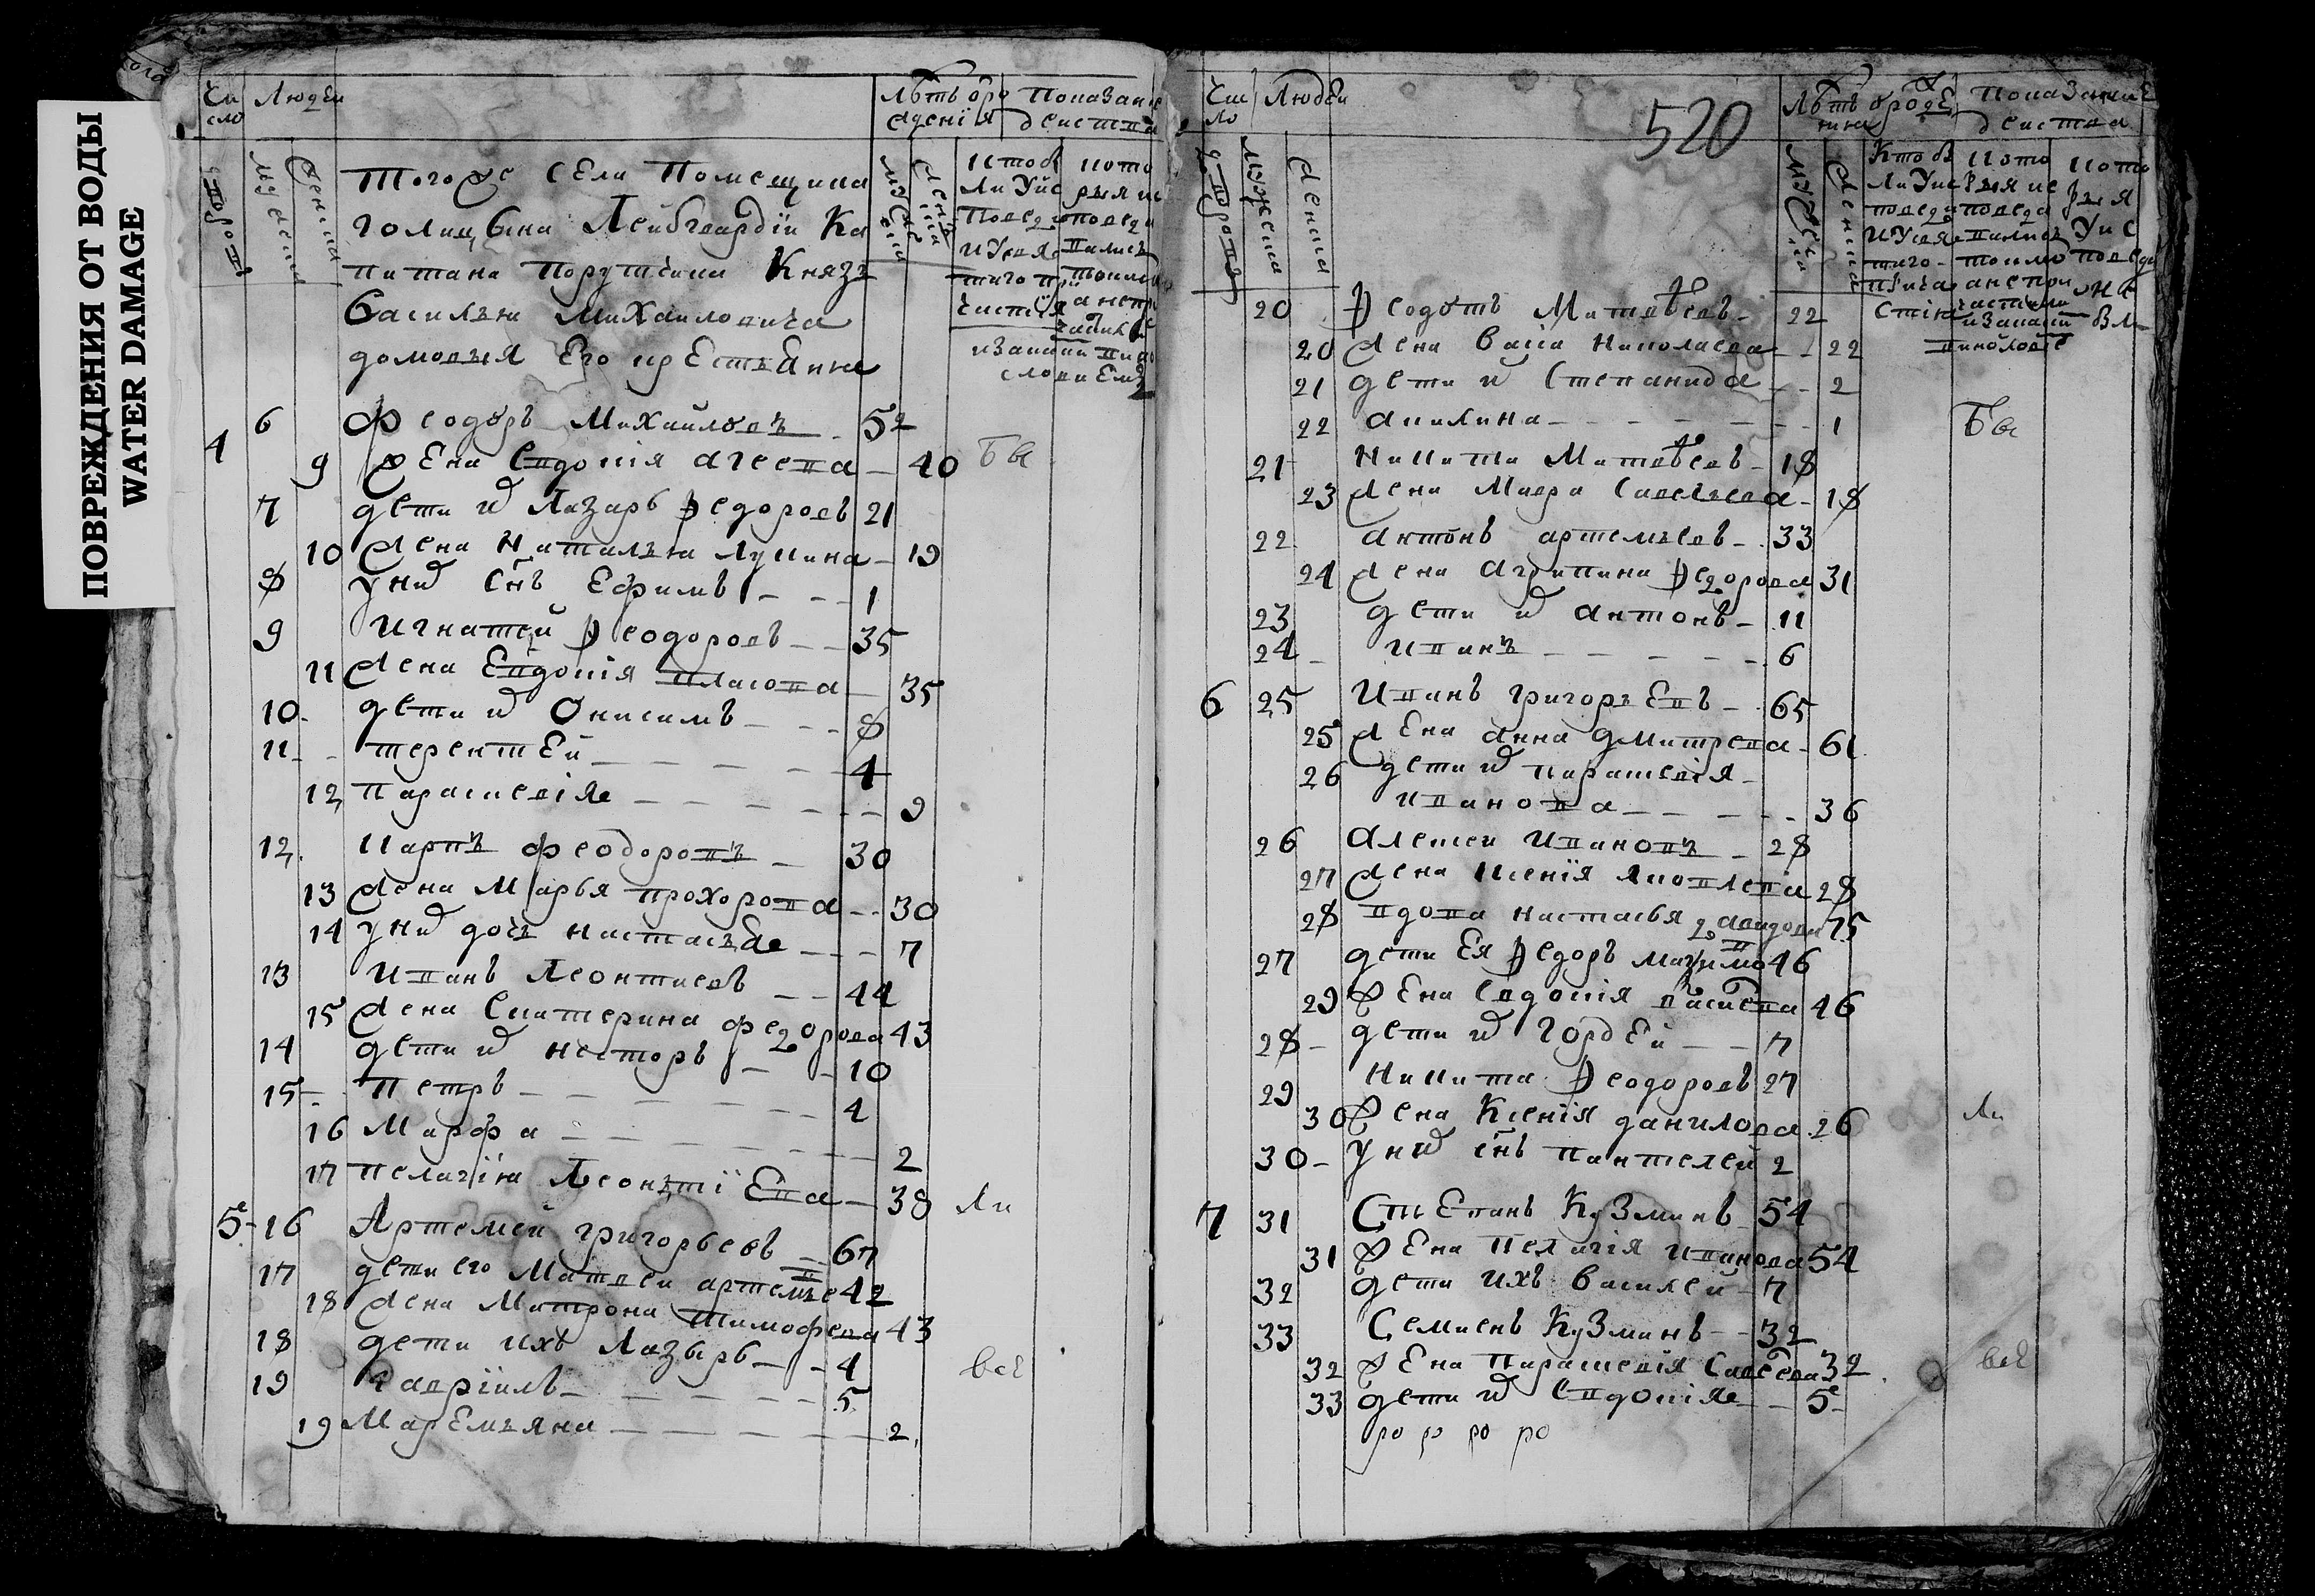 ПОВРЕЖДЕНИЯ ОТ ВОДЫ
WATER DAMAGE
Чи
сло
Людеи
Лѣтъ ѿро
ждениѧ
Показание
мужеска
женска
Тогоже села Помещика
голицына Леибгвардіи Ка
питана Порутчика Князь
Василья Михаиловича
домовыя Его крестьяне
4 6 Феодоръ Михаиловъ 52
9 жена Евдокія Агеева 40 Бы
7 дети иⷯ Лазарь Ѳедоровъ 21
10 жена Наталья Лукина 19
8 у ниⷯ снъ Ефимъ 1
9 Игнатей Ѳеодоровъ 35
11 жена Евдокія Власова 35
10 дети иⷯ Онисимъ 8
11 терентей 4
12 Парасковія 9
12 Карпъ феодоровъ 30
13 жена Марья прохорова 30
14 у ниⷯ дочь настасья 7
13 Иванъ Леонтиевъ 44
15 жена Екатерина федорова 43
14 дети иⷯ несторъ 10
15 Петръ 4
16 Марфа 2
17 Пелагія Леонътіева 38 Ли
5 16 Артемей григорьевъ 67
17 дети его Матвеи артемьеⷡ 42
18 жена Матрона тимофева 43
18 дети ихъ Лазырь 4 всѣ
19 Гавріилъ 5
19 Маремьяна 2
Чис
ло
Людеи
520
Показание
деиства
мужеска
женска
20 Ѳеодотъ Матвѣевъ 22
20 жена Васа Николаева 22
21 дети иⷯ Степанида 2
22 акилина 1 Бы
21 Никита Матвѣевъ 18
23 жена Мавра Савельева 18
22 антонъ артемьевъ 33
24 жена Агрипина Ѳедорова 31
23 дети иⷯ антонъ 11
24 иванъ 6
6 25 Иванъ григорьевъ 65
25 жена анна дмитрева 61
26 дети иⷯ парасковія
иванова 36
26 Алексеи Ивановъ 28
27 жена Ксенія Яковлева 28
28 вдова настасья давидова 75
27 дети Ея Ѳедоръ Макимоⷡ 46
29 жена Евдокія Васиева 46
28 дети иⷯ Гордей 7
29 Никита Ѳеодоровъ 27
30 жена Ксенія данилова 26 Ли
30 у ниⷯ снъ пантелей 2
7 31 Стьепанъ Кузминъ 54
31 жена Пелагія иванова 54
32 дети ихъ василеи 7
33 Семиенъ Кузминъ 32
32 жена Парасковія Савѣева 32 всѣ
33 дети иⷯ Евдокія 5
ро ро ро ро